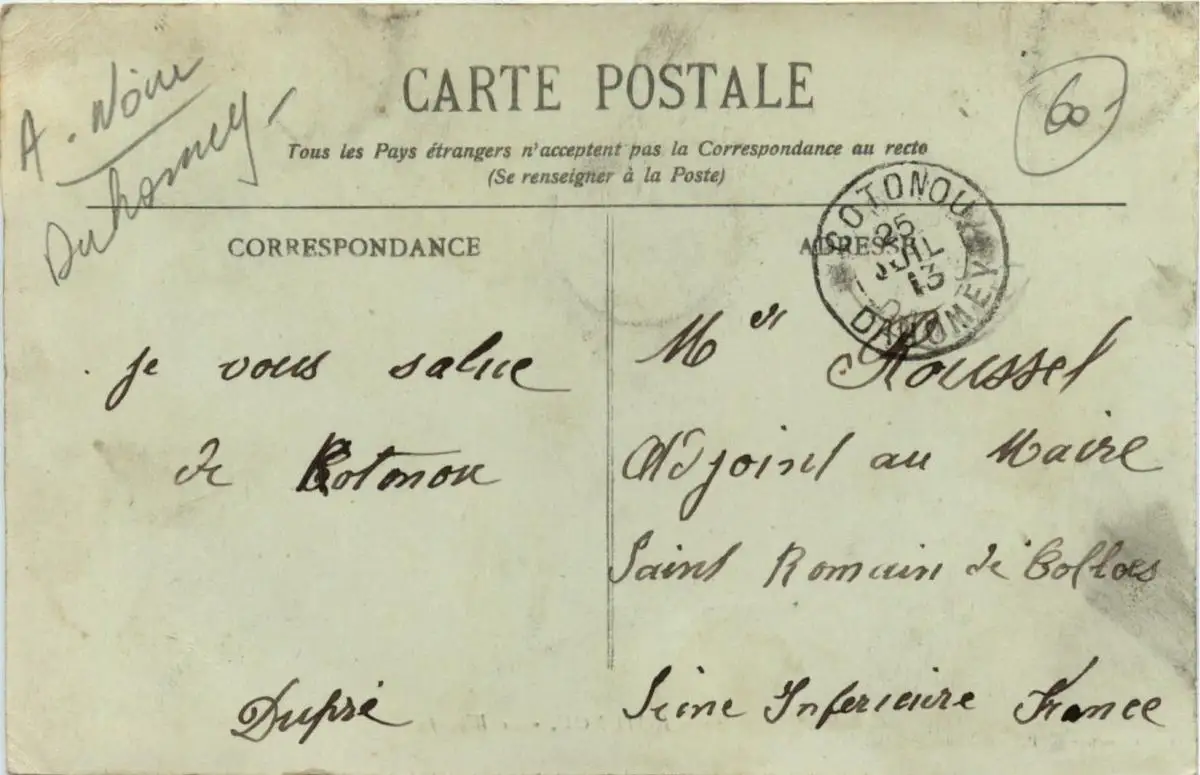 A. Noire
Dahomey -
60
CARTE POSTALE
Tous les Pays étrangers n'acceptent pas la Correspondance au recto
(Se renseigner à la Poste)
COTONOU
25
JUIL
13
DAHOMEY
CORRESPONDANCE
je vous salue
de Cotonou
Dupré
ADRESSE
Mr Roussel
Adjoint au Maire
Saint Romain de Colbos
Seine Inferieure France